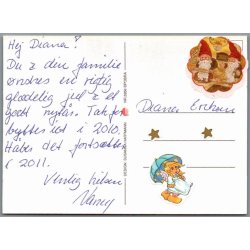 Hej Diana!
Du & den familie
ønskes en rigtig
glædelig jul & et
godt nytår. Tak for
byttes ict i 2010.
Håber det fortsætter
i 2011.
Venlig hilsen
Nancy
Diana